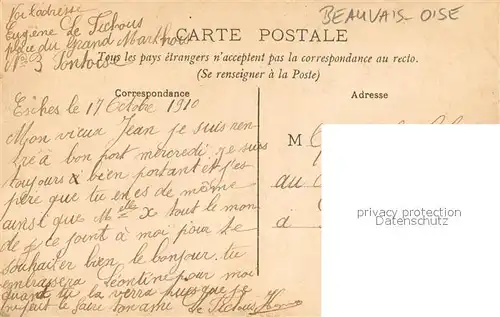 Voi l'adresse
Eugène Le Tichous
place du Grand Marthoi
N° 3 Pontoise
BEAUVAIS - OISE
CARTE POSTALE
Tous les pays étrangers n'acceptent pas la correspondance au recto.
(Se renseigner à la Poste)
Correspondance
Adresse
Esches le 17 Octobre 1910
Mon vieux Jean je suis ren-
tré à bon port mercredi je suis
toujours bien portant et j'es
père que tu en es de même
ainsi que Melle X tout le mon
de se joint à moi pour te
souhaiter bien le bonjour. tu
embrassera Léontine pour moi
quand tu la verra puisque je
ne peut le faire ton ami Le Tichous
M
au
à
privacy protection
Datenschutz